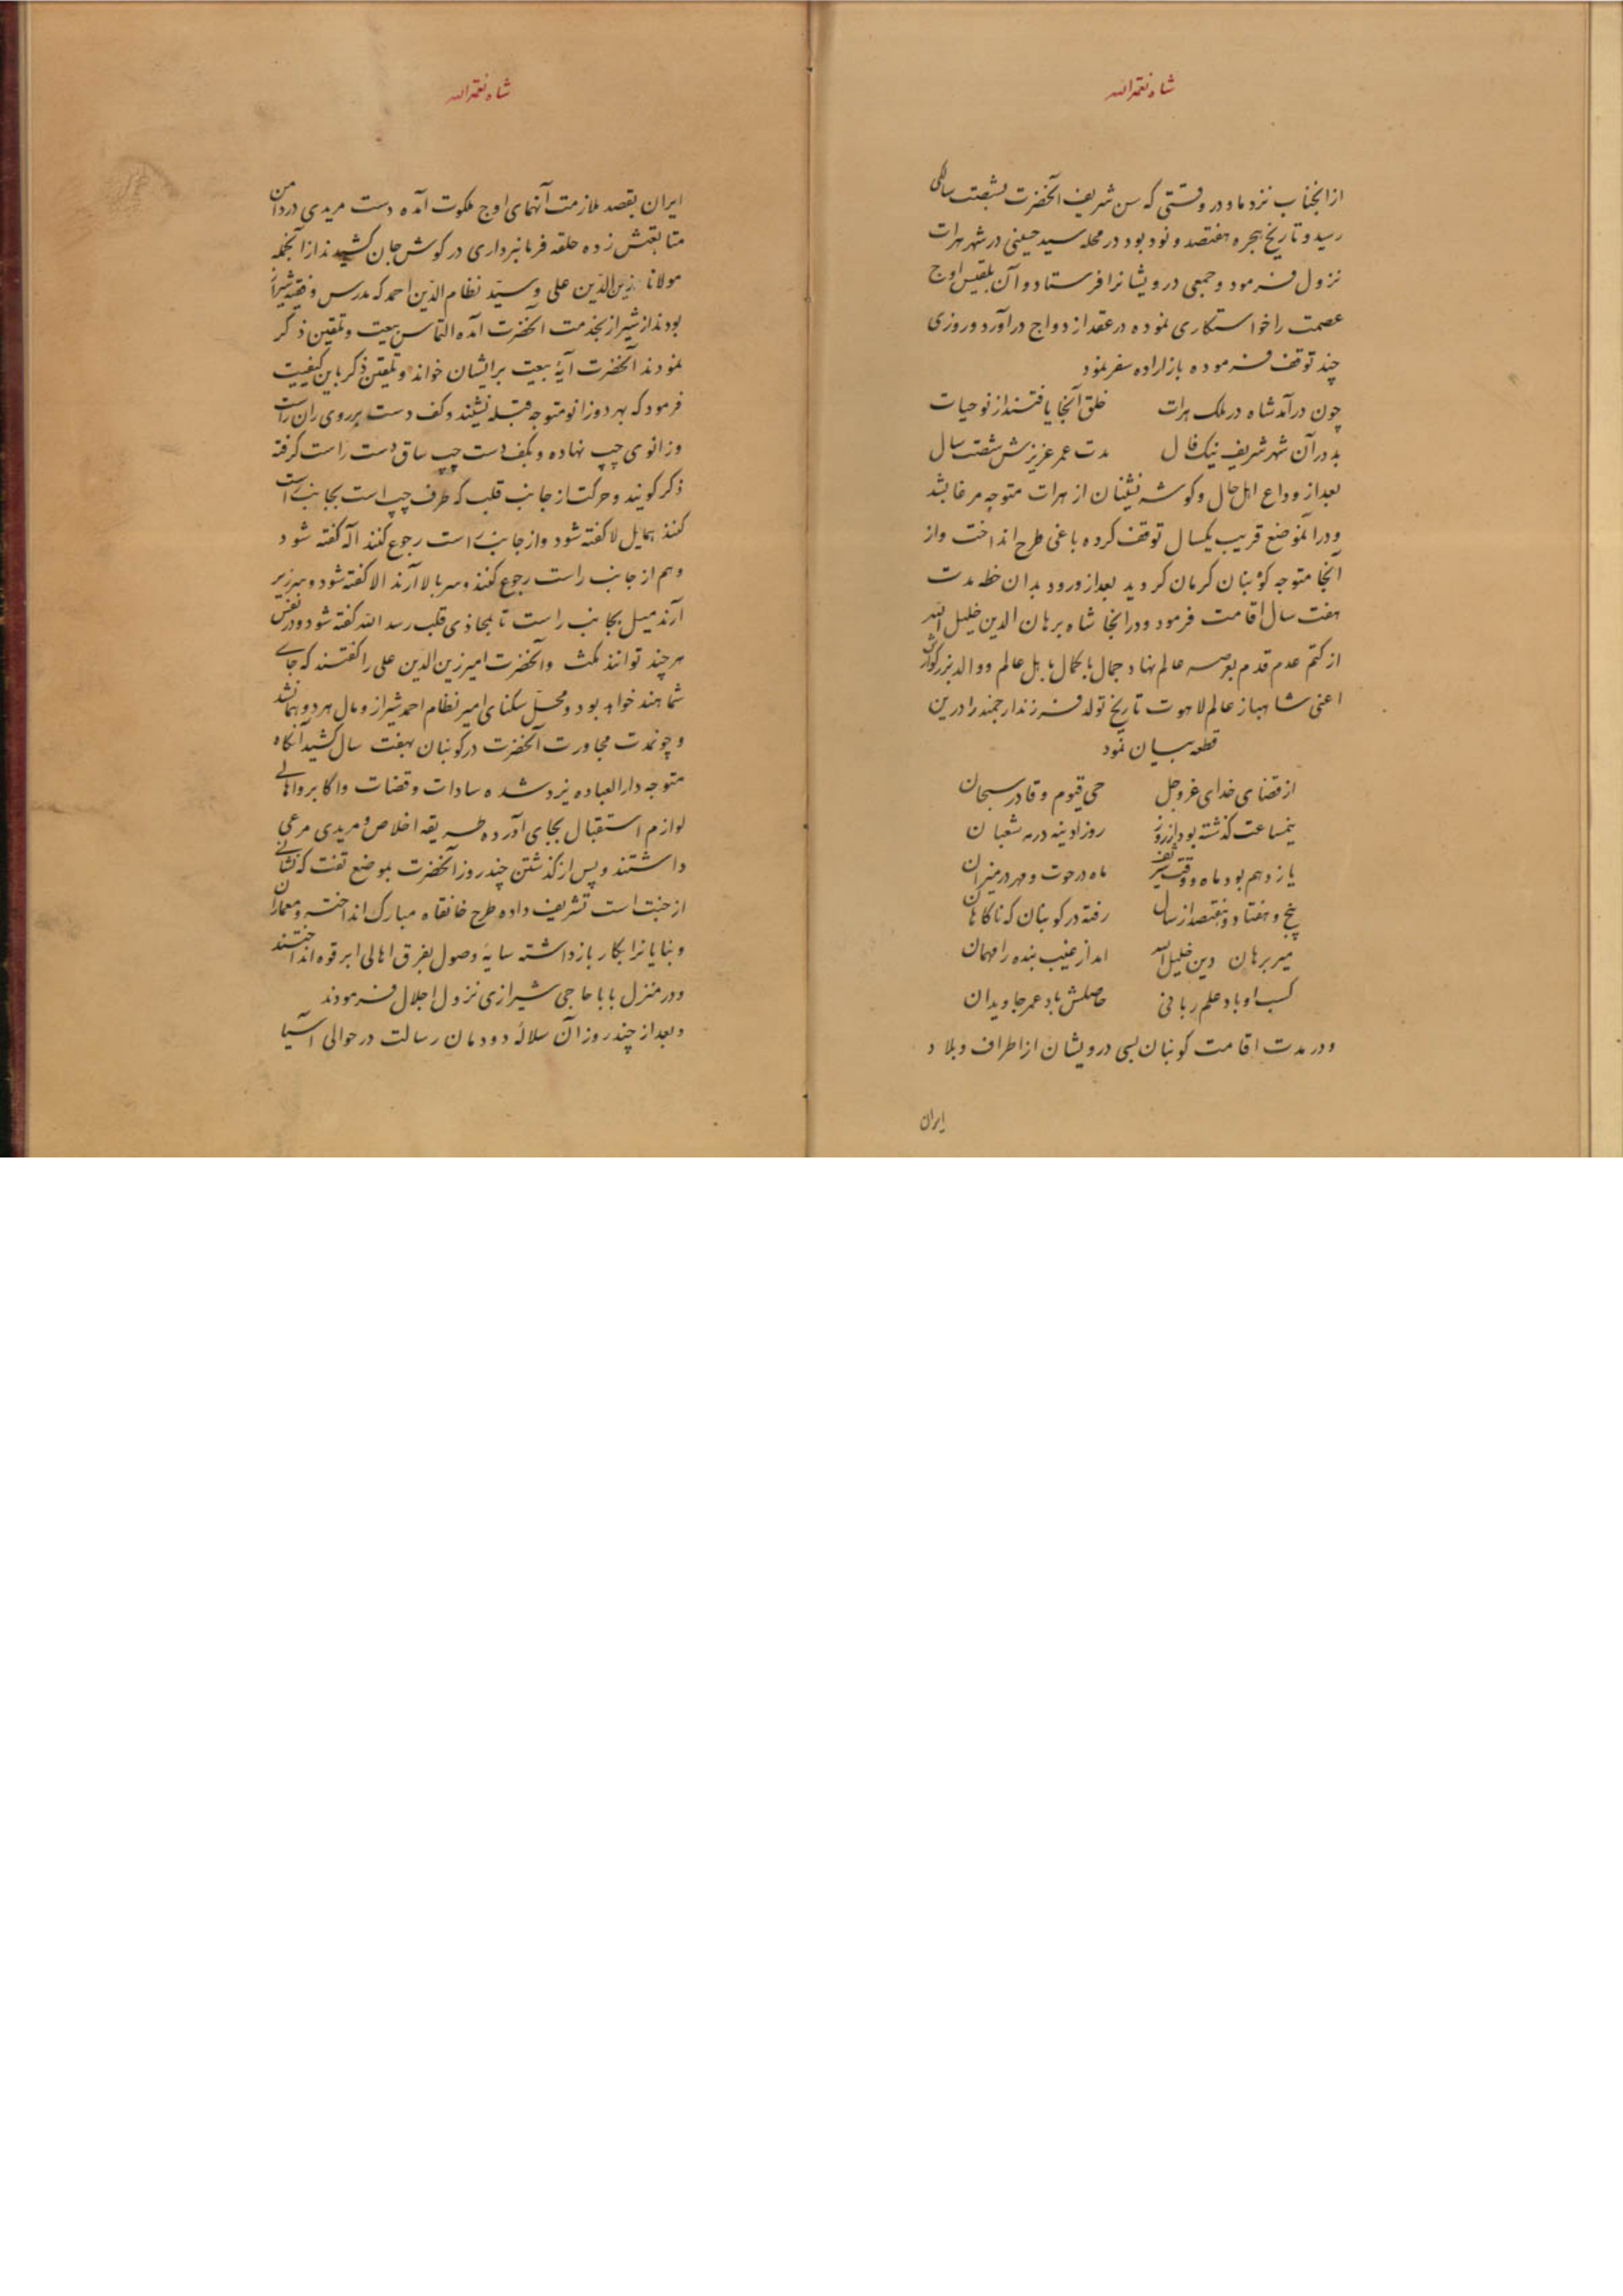 شاه نعمة الله
ازانجناب نزد ماد در وقتتی که سن شریف آنحضرت بشصت سالگی
رسید و تاریخ هجره هفتصد و نود بود در محله سید حسینی در شهر هرات
نزول فرمود و جمعی درویشانرا فرستاد و آن بلقیس اوج
عصمت را خواستکاری نموده در عقد ازدواج درآورد و روزی
چند توقف فرموده باز اراده سفر نمود
چون درآمد شاه در ملک هرات خلق آنجا یافتند از نو حیات
بد در آن شهر شریف نیک فال مدت عمر عزیزش شصت سال
بعد از وداع اهل حال و کوشه نشینان از هرات متوجه مرغا بشد
ودر انموضع قریب یکسال توقف کرده باغی طرح انداخت واز
آنجا متوجه کوبنان کرمان کردید بعد از ورود بدان خطه مدت
هفت سال اقامت فرمود ودر انجا شاه برهان الدین خلیل الله
از کتم عدم قدم بعرصه عالم نهاد و جمال با کمال با بل عالم ووالد بزرکوارش
اعنی شاهباز عالم لاهوت تاریخ تولد فرزند ارجمند را درین
قطعه بیان نمود
از قضای خدای عزوجل حی قیوم و قادر سبحان
نیمساعت کذشته بود از روز روز ادینه در مه شعبان
یازدهم بود ماه و وقت شریف ماه در حوت و مهر در میزان
پنج و هفتاد و هفتصد از سال رفته در کوبنان که ناکاهان
میر برهان دین خلیل الله امد از غیب بنده را مهمان
کسب او باد علم ربانی حاصلش باد عمر جاویدان
ودر مدت اقامت کوبنان بسی درویشان از اطراف و بلاد
ایران
شاه نعمة الله
ایران بقصد ملازمت آنهمای اوج ملکوت آمده دست مریدی در دامن
متابعتش زده حلقه فرمانبرداری در کوش جان کشیدند ازانجمله
مولانا زین الدین علی و سید نظام الدین احمد که مدرس و فقیه شیراز
بودند از شیراز بخدمت آنحضرت آمده التماس بیعت و تلقین ذکر
نمودند آنحضرت آیۀ بیعت برایشان خواند و تلقین ذکر باین کیفیت
فرمود که بهر دو زانو متوجه قبله نشیند و کف دست بر روی ران راست
وزانوی چپ نهاده و بکف دست چپ ساق دست راست کرفته
ذکر کویند و حرکت از جانب قلب که طرف چپ است بجانب راست
کنند بمایل لا کفته شود واز جانب راست رجوع کنند اله کفته شود
وهم از جانب راست رجوع کنند و سر بالا آرند الا کفته شود و سر زیر
آرند میل بجانب راست تا بمحاذی قلب رسد الله کفته شود و در نفس
هرچند توانند مکث وآنحضرت امیر زین الدین علی را کفتند که جای
شما هند خواهد بود و محل سکنای امیر نظام احمد شیراز و مال هر دو همانشد
و چون مدت مجاورت آنحضرت در کوبنان بهفت سال کشید آنکاه
متوجه دار العباده یزد شده سادات و قضات و اکابر و اهالی
لوازم استقبال بجای آورده طریقه اخلاص و مریدی مرعی
داشتند و پس از کذشتن چند روز آنحضرت بموضع تفت که نشانی
از جنت است تشریف داده طرح خانقاه مبارک انداخته و معماران
وبنایانرا بکار بازداشته سایۀ وصول بفرق اهالی ابرقوه انداختند
ودر منزل بابا حاجی شیرازی نزول اجلال فرمودند
وبعد از چند روز آن سلالۀ دودمان رسالت در حوالی آسیا